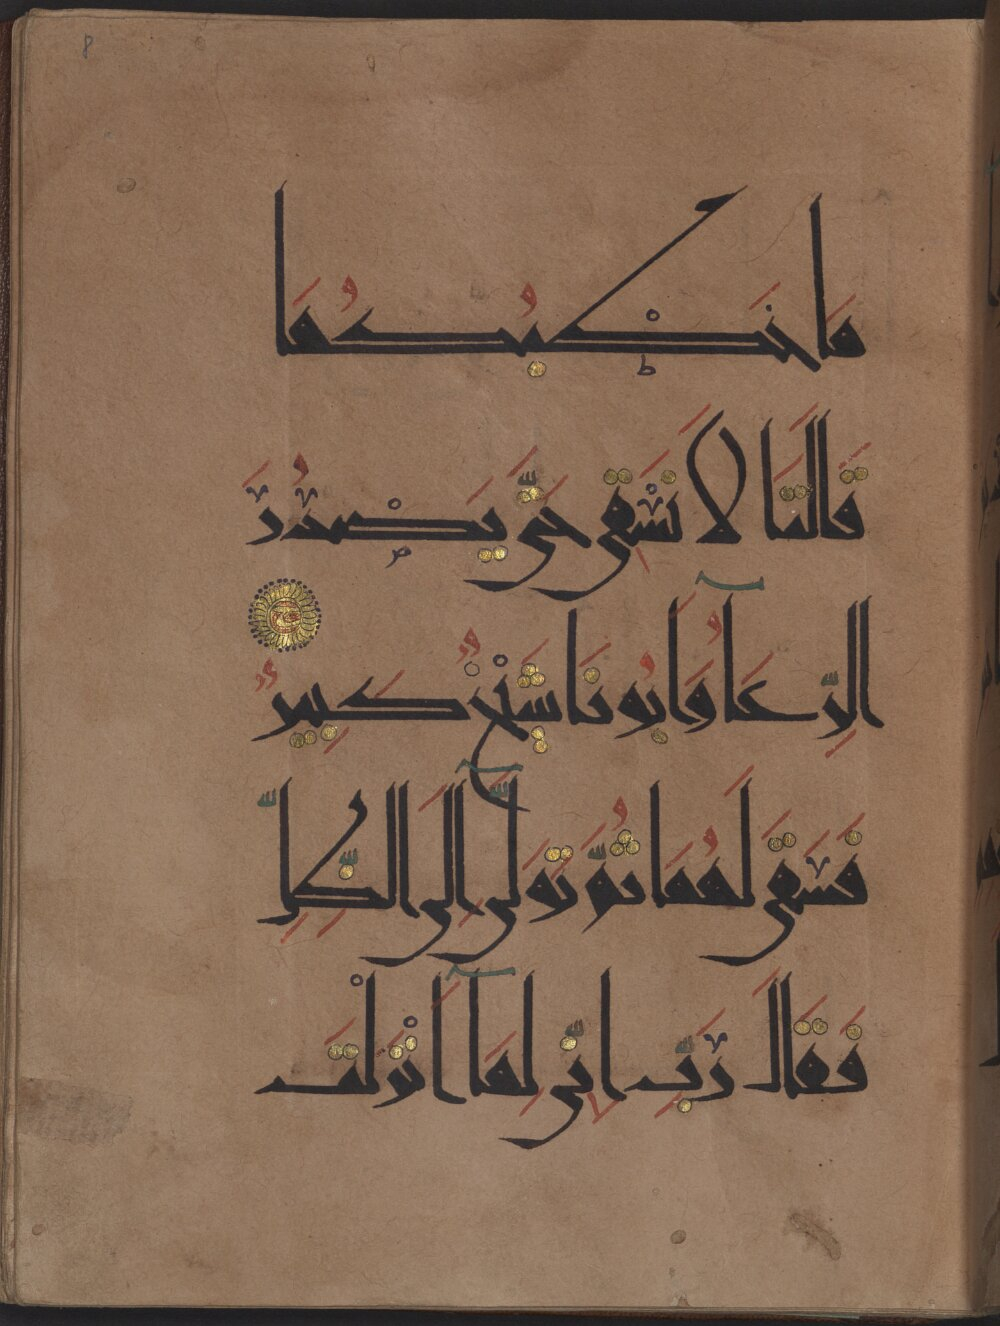 8
مَا خَطْبُكُمَا
قَالَتَا لَا نَسْقِى حَتَّى يَصْدُرَ
الرِّعَآُ وَاَبُونَا شَيْخٌ كَبِيرٌ
فَسَقَى لَهُمَا ثُمَّ تَوَلَّىٓ اِلَى الظِّلِّ
فَقَالَ رَبِّ اِنِّى لِمَآ اَنْزَلْتَ